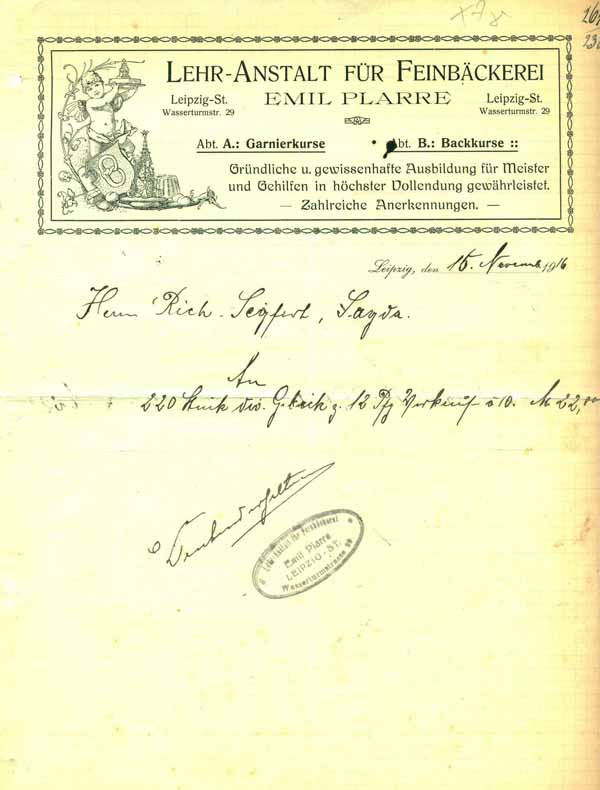 LEHR-ANSTALT FÜR FEINBÄCKEREI
Leipzig-St. EMIL PLARRE Leipzig-St.
Wasserturmstr. 29 Wasserturmstr. 29
Abt. A.: Garnierkurse Abt. B.: Backkurse ::
Gründliche u. gewissenhafte Ausbildung für Meister
und Gehilfen in höchster Vollendung gewährleistet.
— Zahlreiche Anerkennungen. —
Leipzig, den 15. Novemb 1916
Herrn Rich. Seyfert, Sayda.
An
220 Stück div. z. 12 Pfg Verkauf o 10. M 22,00
Lehranstalt für Feinbäckerei
Emil Plarre
LEIPZIG-ST.
Wasserturmstrasse 29